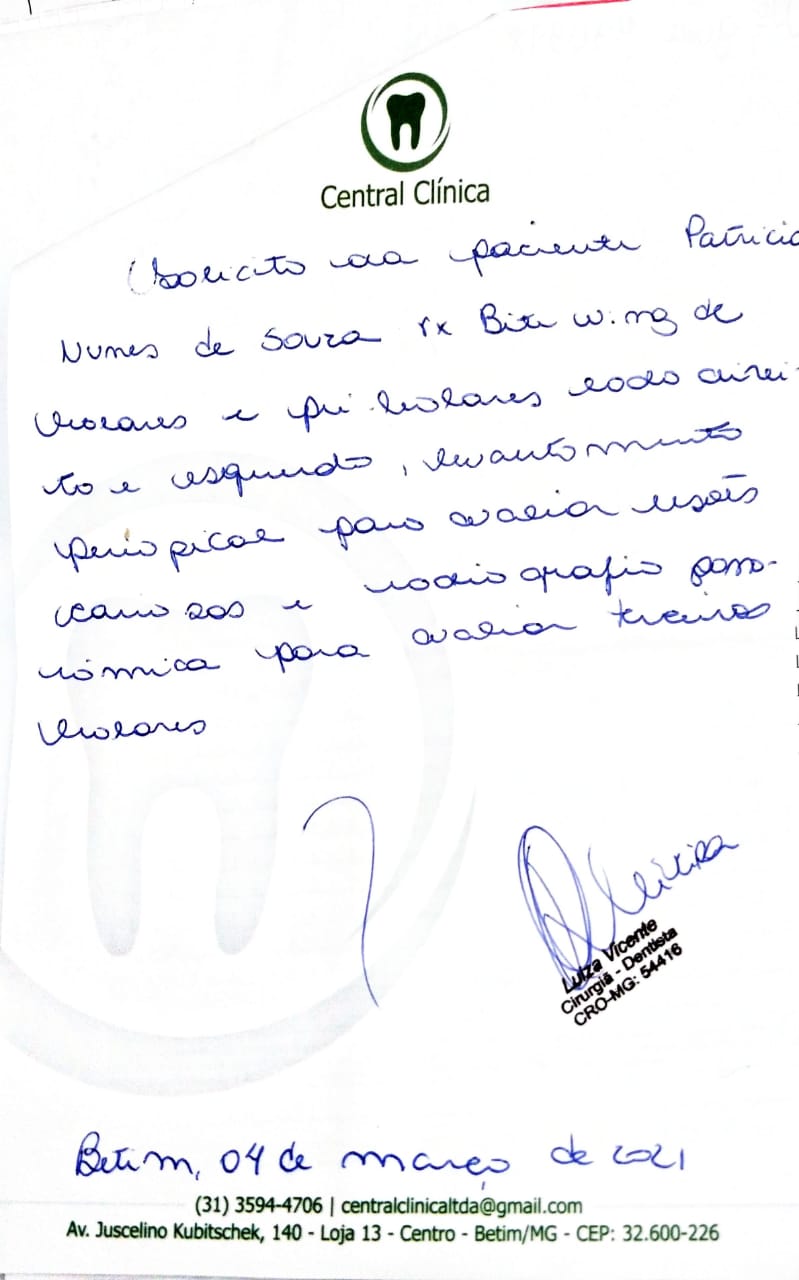 Central Clínica
Solicito da paciente Patricia
Nunes de Souza rx Bite wing de
molares e pré-molares lado direi-
to e esquerdo, levantamento
periapical para avaliar lesões
cariosas e radiografia pano-
râmica para avaliar terceiros
molares
Luiza Vicente
Cirurgiã - Dentista
CRO-MG: 54416
Betim, 04 de março de 2021
(31) 3594-4706 | centralclinicaltda@gmail.com
Av. Juscelino Kubitschek, 140 - Loja 13 - Centro - Betim/MG - CEP: 32.600-226